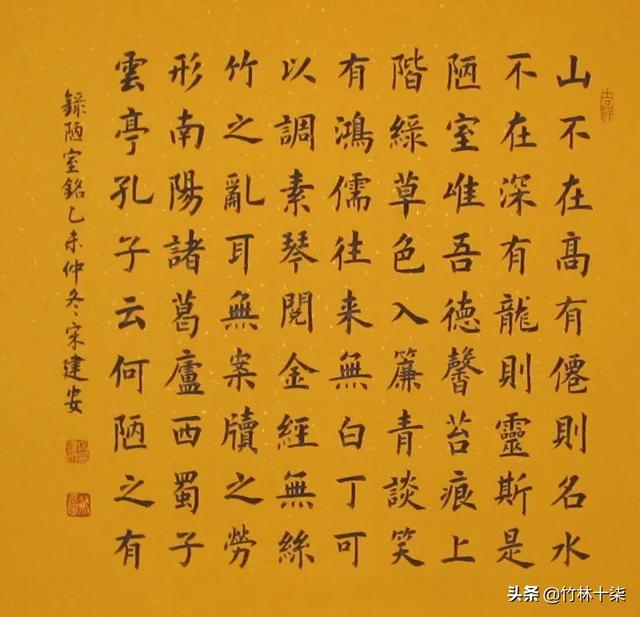 山不在高有僊則名水
不在深有龍則靈斯是
陋室唯吾德馨苔痕上
階綠草色入簾青談笑
有鴻儒往来無白丁可
以調素琴閱金經無絲
竹之亂耳無案牘之勞
形南陽諸葛廬西蜀子
雲亭孔子云何陋之有
錄陋室銘乙未仲冬宋建安
头条 @竹林十柒